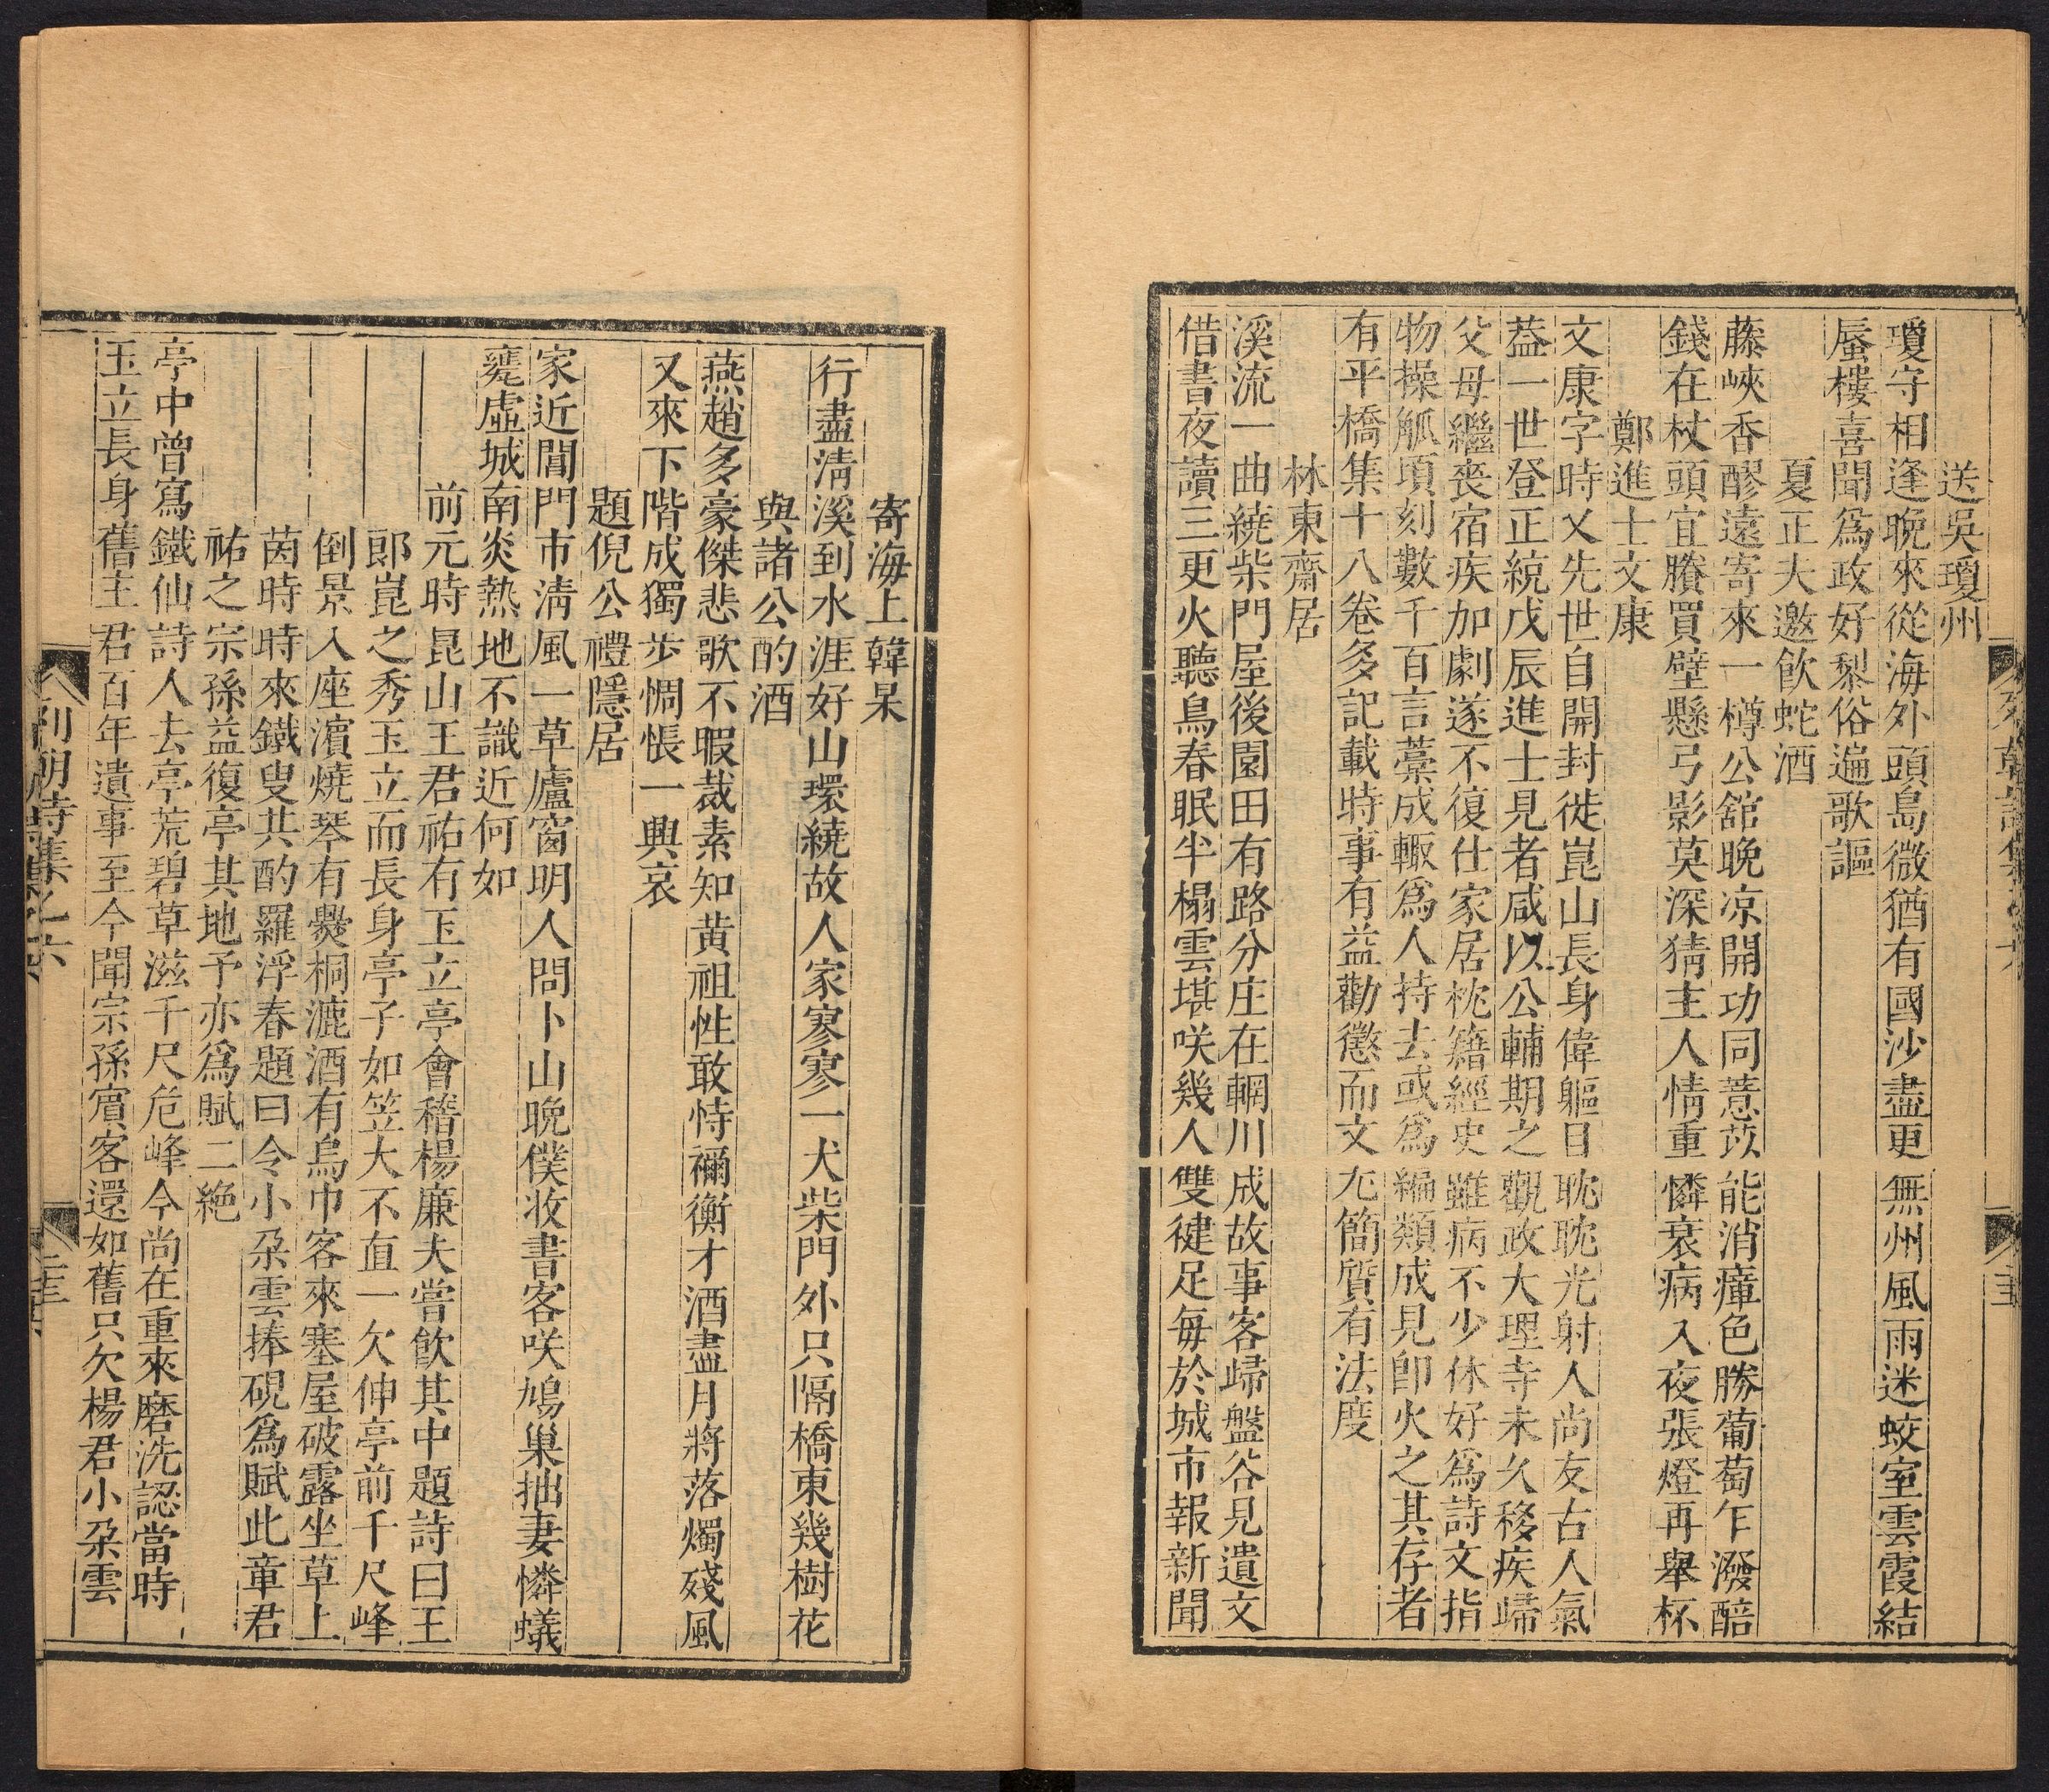 送吳瓊州
瓊守相逢晚來從海外頭島微猶有國沙盡更無州風雨迷蛟室雲霞結
蜃樓喜聞爲政好黎俗遍歌謳
夏正夫邀飲蛇酒
藤峽香醪遠寄來一樽公舘晚凉開功同薏苡能消瘴色勝葡萄乍潑醅
錢在杖頭宜賸買壁懸弓影莫深猜主人情重憐衰病入夜張燈再舉杯
鄭進士文康
文康字時乂先世自開封徙崑山長身偉軀目耽耽光射人尚友古人氣
葢一世登正統戊辰進士見者咸以公輔期之觀政大理寺未久移疾歸
父母繼喪宿疾加劇遂不復仕家居枕籍經史雖病不少休好爲詩文指
物操觚頃刻數千百言藁成輙爲人持去或爲編類成見卽火之其存者
有平橋集十八卷多記載時事有益勸懲而文尤簡質有法度
林東齋居
溪流一曲繞柴門屋後園田有路分庄在輞川成故事客歸盤谷見遺文
借書夜讀三更火聽鳥春眠半榻雲堪咲幾人雙徤足每於城市報新聞
列朝詩集乙六
寄海上韓杲
行盡淸溪到水涯好山環繞故人家寥寥一犬柴門外只隔橋東幾樹花
與諸公酌酒
燕趙多豪傑悲歌不暇裁素知黄祖性敢恃禰衡才酒盡月將落燭殘風
又來下階成獨步惆悵一興哀
題倪公禮隱居
家近閶門市淸風一草廬窗明人問卜山晚僕收書客咲鳩巢拙妻憐蟻
甕虛城南炎熱地不識近何如
前元時昆山王君祐有玉立亭會稽楊廉夫嘗飮其中題詩曰王
郎崑之秀玉立而長身亭子如笠大不直一欠伸亭前千尺峰
倒景入座濵燒琴有爨桐漉酒有烏巾客來塞屋破露坐草上
茵時時來鐵叟共酌羅浮春題曰令小朶雲捧硯爲賦此章君
祐之宗孫益復亭其地予亦爲賦二絶
亭中曾寫鐵仙詩人去亭荒碧草滋千尺危峰今尚在重來磨洗認當時
玉立長身舊主君百年遺事至今聞宗孫賓客還如舊只欠楊君小朶雲
列朝詩集乙六